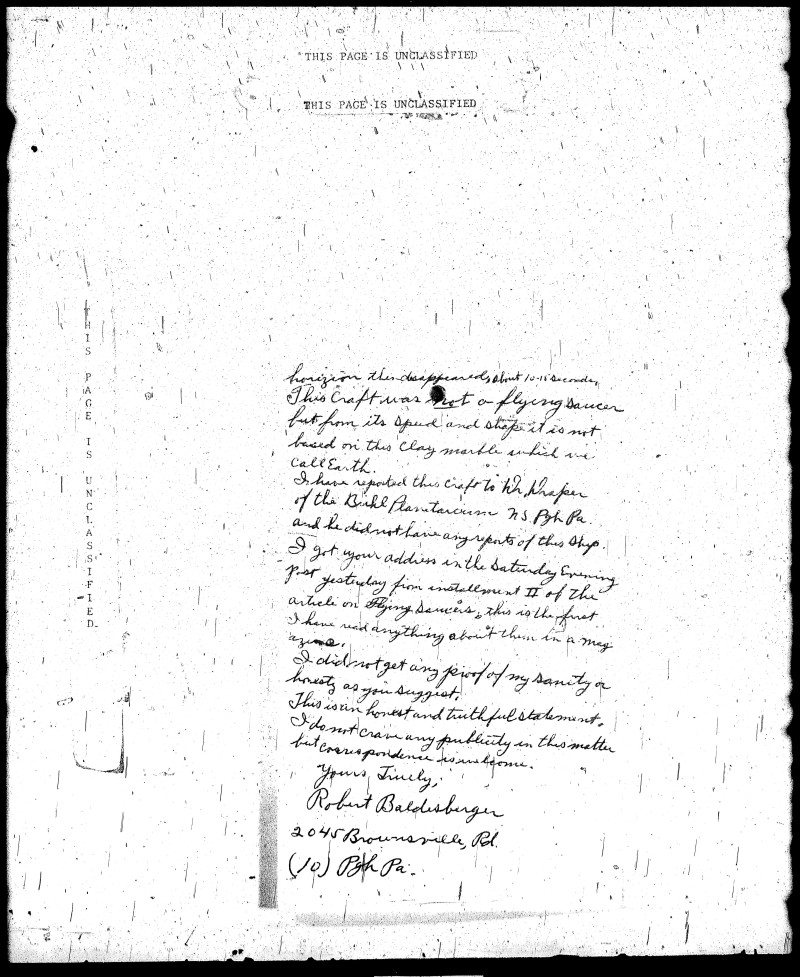 THIS PAGE IS UNCLASSIFIED
THIS PAGE IS UNCLASSIFIED
THIS PAGE IS UNCLASSIFIED.
horizion then disappeared, about 10-15 seconds,
This Craft was not a flying saucer
but from its speed and shape it is not
based on this clay marble which we
call Earth.
I have reported this craft to Mr, Draper
of the Buhl Planetarium N S. Pgh Pa.
and he did not have any reports of this ship.
I got your address in the Saturday Evening
Post yesterday from installment II of the
article on Flying Saucers, this is the first
I have read anything about them in a mag
azine.
I did not get any proof of my sanity or
honesty as you suggest.
This is an honest and truthful statement.
I do not crave any publicity in this matter
but correspondence is welcome.
Yours, Truely,
Robert Baldesberger
2045 Brownsville, Rd.
(10) Pgh Pa.